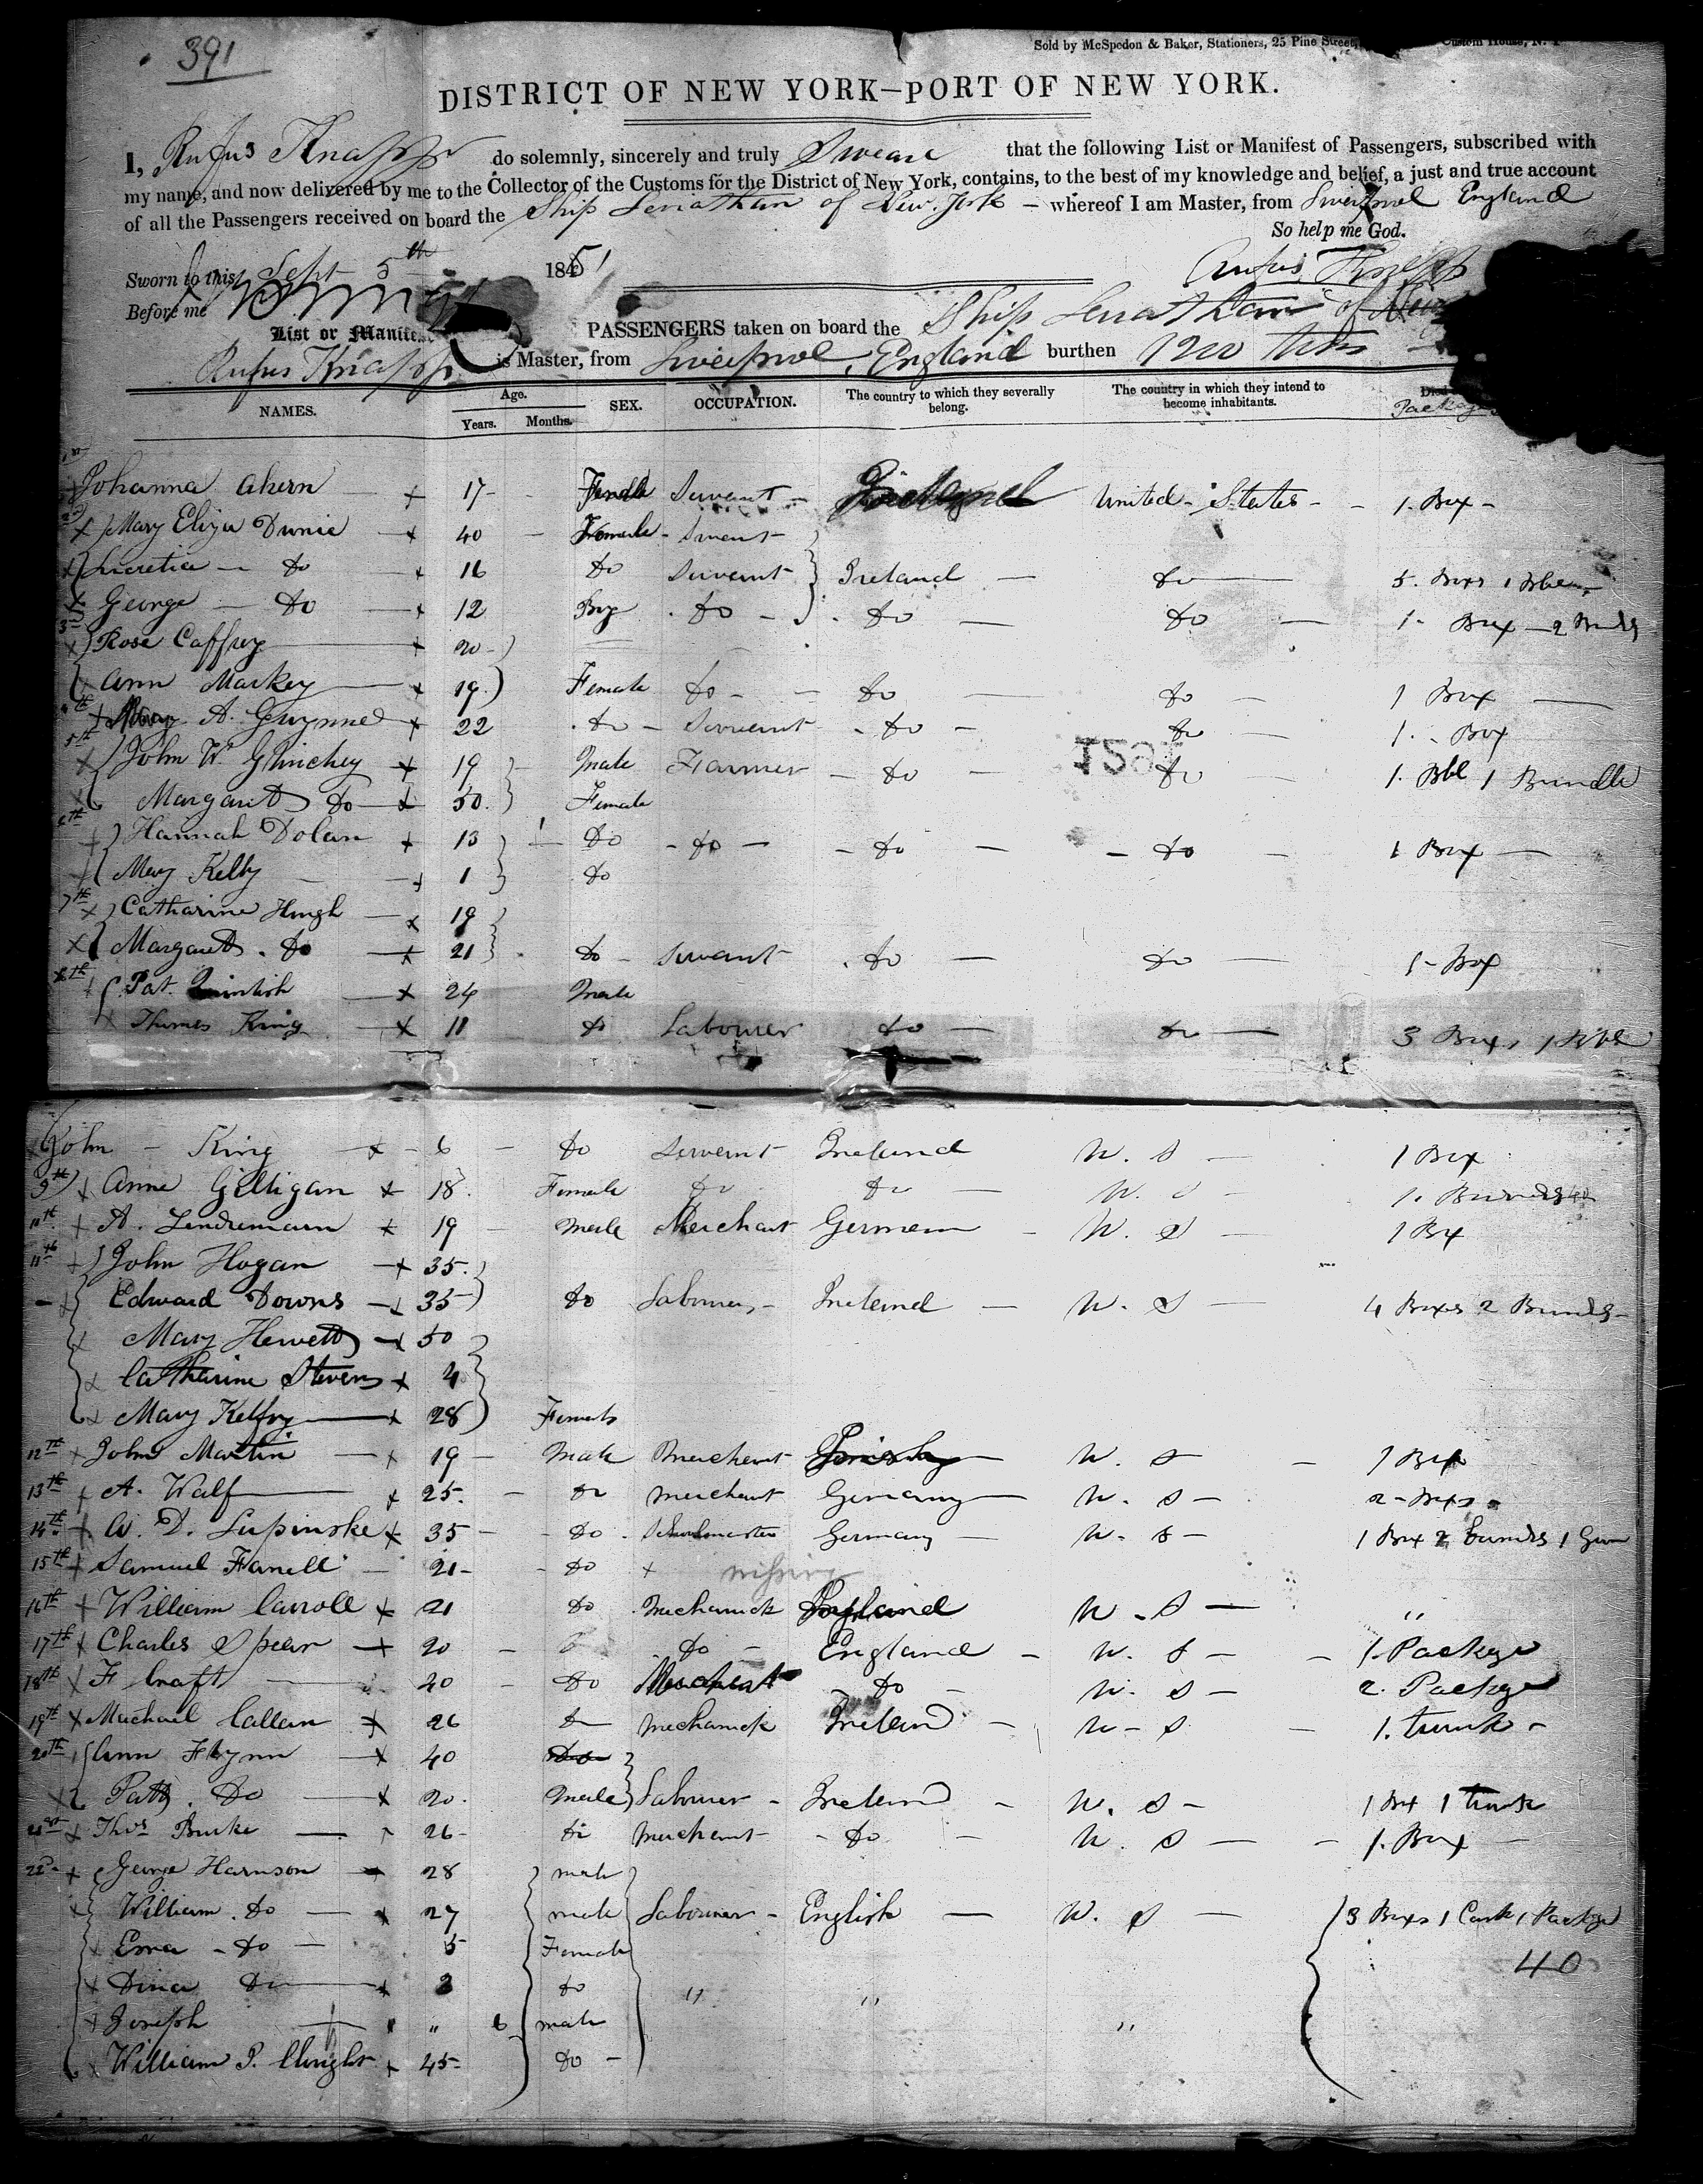 391
Sold by McSpedon & Baker, Stationers, 25 Pine Street, Custom House, N. Y
DISTRICT OF NEW YORK—PORT OF NEW YORK.
I, Rufus Knapp do solemnly, sincerely and truly Sweare that the following List or Manifest of Passengers, subscribed with
my name, and now delivered by me to the Collector of the Customs for the District of New York, contains, to the best of my knowledge and belief, a just and true account
of all the Passengers received on board the Ship of New York — whereof I am Master, from Liverpool England
So help me God.
Sworn to this Sept 5th 1851 Rufus Knapp
Before me
List or Manifest PASSENGERS taken on board the Ship of New
Rufus Knapp is Master, from Liverpool, England burthen 1200 tons
NAMES. Age. Years. Months. SEX. OCCUPATION. The country to which they severally belong. The country in which they intend to become inhabitants. Died Packages
1st Johanna Ahern 17 Female Servant United States 1. Box
2nd Mary Eliza 40 Female Servant
Lucretia do 16 do Servant Ireland do 5. Boxes 1 Bble
George do 12 Boy do do do 1. Box 2 Bundls
3rd Rose Caffrey 20
Ann Markey 19 Female do do do 1 Box
4th Mary A. Gwynne 22 do Servant do do 1. Box
5th John W. Glinchey 19 Male Farmer do do 1. Bbl 1 Bundle
Margaret do 50. Female
6th Hannah Dolan 13 do do do do 1 Box
Mary Kelly 1 do
7th Catharine Hugh 19
Margaret do 21 do Servant do do 1 Box
8th Pat. 24 Male
Thomas King 11 do Labourer do do 3 Boxs 1 Bble
John King 6 do Servant Ireland U. S 1 Box
9th Anne Gilligan 18 Female do do U. S 1. Bundls
10th A. Lendemann 19 Male Merchant German U. S 1 Bx
11th John Hogan 35.
Edward Downs 35 do Labourer Ireland U. S 4 Boxes 2 Bundls
Mary Hewett 50
Catharine Stevens 4
Mary Kelfry 28 Female
12th John Martin 19 Male Merchant U. S 1 Box
13th A. Walf 25. do Merchant Germany U. S 2 Boxs
14th W. D. Lupinske 35 do Schoolmaster Germany U. S 1 Box 2 Bundls 1 Gun
15th Samuel Farrell 21 do missing
16th William Carroll 21 do Mechanick England U. S "
17th Charles Spear 20 do England U. S 1. Packge
18th F Craft 40 do Merchant do U. S 2. Packge
19th Michael Callan 26 do Mechanick Ireland U. S 1. trunk
20th Ann Flynn 40 do
Patk. Do 20. Male Labourer Ireland U. S 1 Box 1 trunk
21st Thos Burke 26 do Merchant do U. S 1. Box
22d George Harrison 28 male
William do 27 male Labourer English U. S 3 Boxes 1 Cask 1 Packge
Emma do 5 Female 40
Dina do 2 do " "
Joseph " 6 male "
William P. 45 do